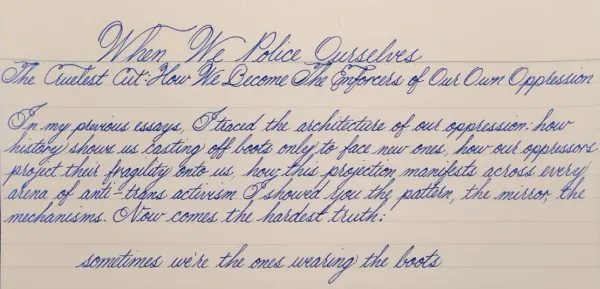 When We Police Ourselves
The Cruelest Cut: How We Become The Enforcers of Our Own Oppression
In my previous essays, I traced the architecture of our oppression: how
history shows us casting off boots only to face new ones, how our oppressors
project their fragility onto us, how this projection manifests across every
arena of anti-trans activism. I showed you the pattern, the mirror, the
mechanisms. Now comes the hardest truth:
sometimes we're the ones wearing the boots